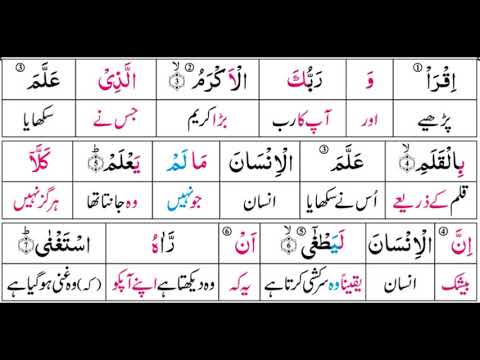 اِقْرَاْ ① وَ رَبُّكَ الْاَكْرَمُ ② ۙ﴿3﴾ الَّذِیْ عَلَّمَ ③
پڑھیے اور آپ کا رب بڑا کریم جس نے سکھایا
بِالْقَلَمِ ۙ﴿4﴾ عَلَّمَ ③ الْاِنْسَانَ مَا لَمْ یَعْلَمْ ؕ﴿5﴾ كَلَّاۤ
قلم کے ذریعے اُس نے سکھایا انسان جو نہیں وہ جانتا تھا ہرگز نہیں
اِنَّ ④ الْاِنْسَانَ لَیَطْغٰۤی ⑤ ۙ﴿6﴾ اَنْ ⑥ رَّاٰهُ اسْتَغْنٰی ؕ﴿7﴾
بیشک انسان یقیناً وہ سرکشی کرتا ہے یہ کہ وہ دیکھتا ہے اپنے آپکو (کہ) وہ غنی ہو گیا ہے